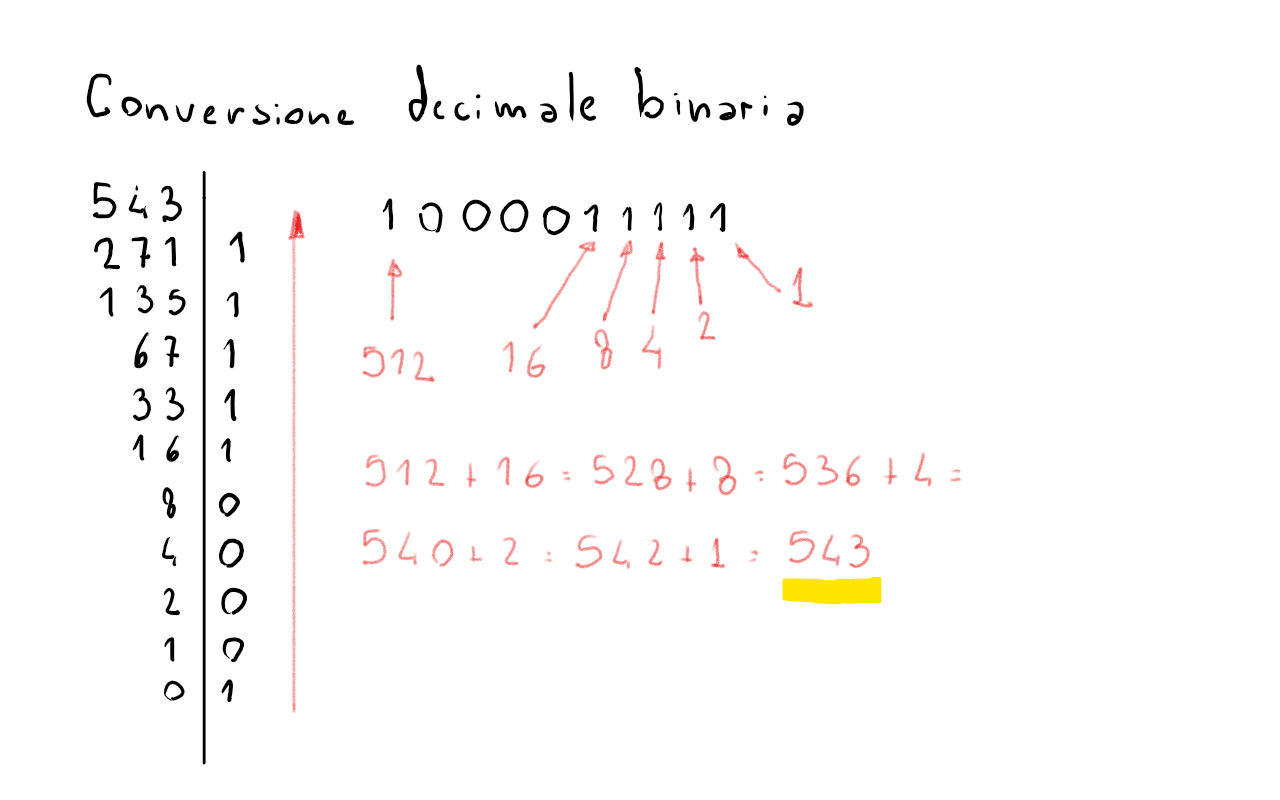 Conversione decimale binaria
543
271 1
135 1
67 1
33 1
16 1
8 0
4 0
2 0
1 0
0 1
1000011111
512 16 8 4 2 1
512 + 16 = 528 + 8 = 536 + 4 =
540 + 2 = 542 + 1 = 543